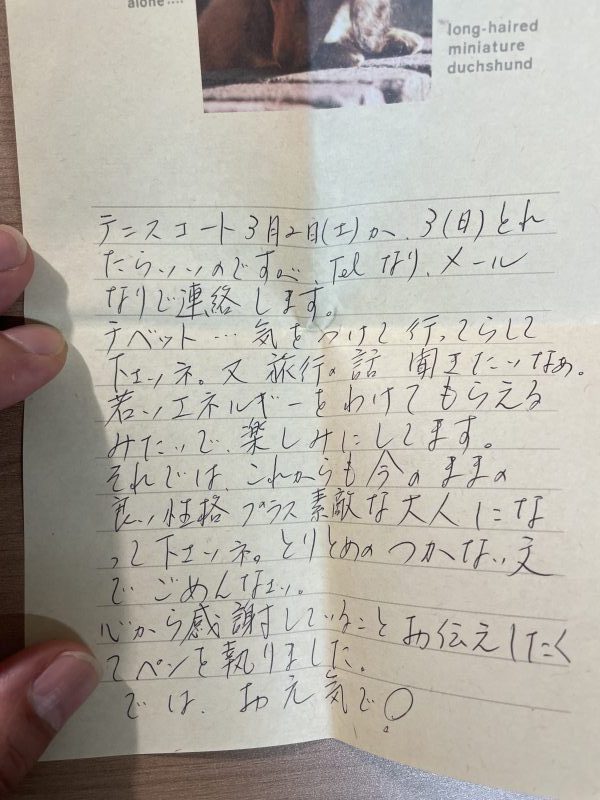 alone....
long-haired
miniature
duchshund
テニスコート3月2日(土)か、3(日)とれ
たらいいのですが、Telなり、メール
なりで連絡します。
チベット…気をつけて行ってらして
下さいネ。又旅行の話聞きたいなぁ。
若いエネルギーをわけてもらえる
みたいで、楽しみにしてます。
それでは、これからも今のままの
良い性格プラス素敵な大人にな
って下さいネ。とりとめのつかない文
でごめんなさい。
心から感謝していることお伝えしたく
てペンを執りました。
では、お元気で。